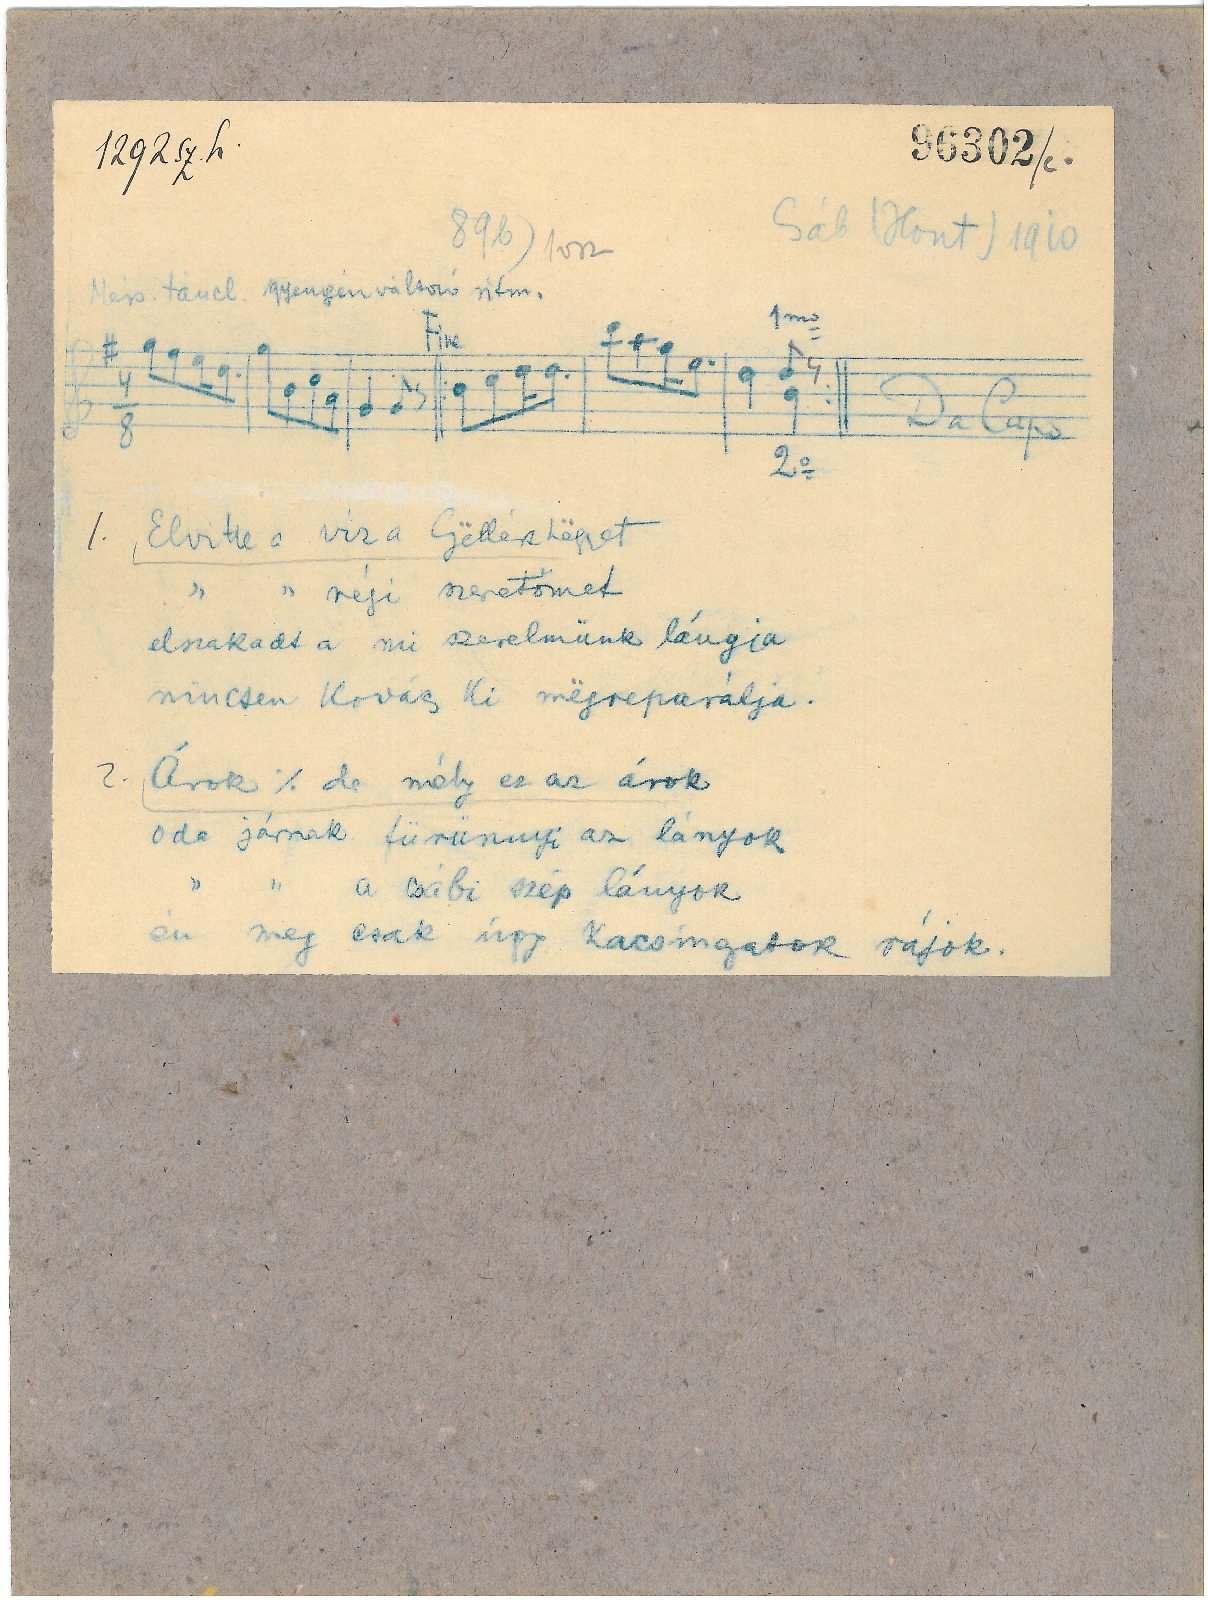 1292 sz. h.
96302/c.
89b)
Sáb (Hont) 1910
táncl. gyengén változó ritm.
4/8
Fine
1mo
Da Capo
2o
1. Elvitte a víz a
" " régi szeretőmet
elszakadt a mi szerelmünk lángja
nincsen kovács ki mëgreparálja.
2. Árok ⁒ de mély ez az árok
oda járnak az lányok
" " a szép lányok
én meg csak úgy kacsingatok rájok.